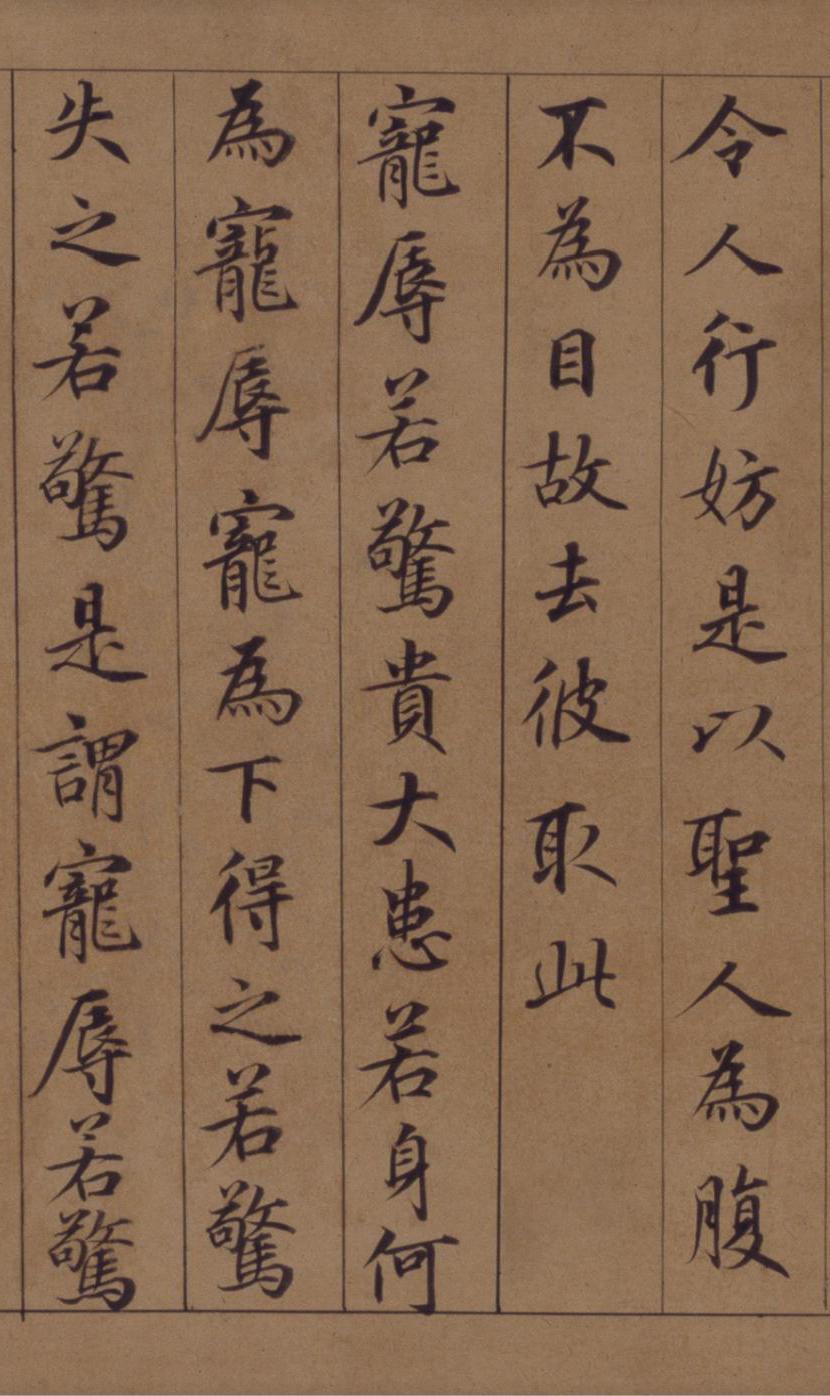 令人行妨是以聖人為腹
不為目故去彼取此
寵辱若驚貴大患若身何
為寵辱寵為下得之若驚
失之若驚是謂寵辱若驚